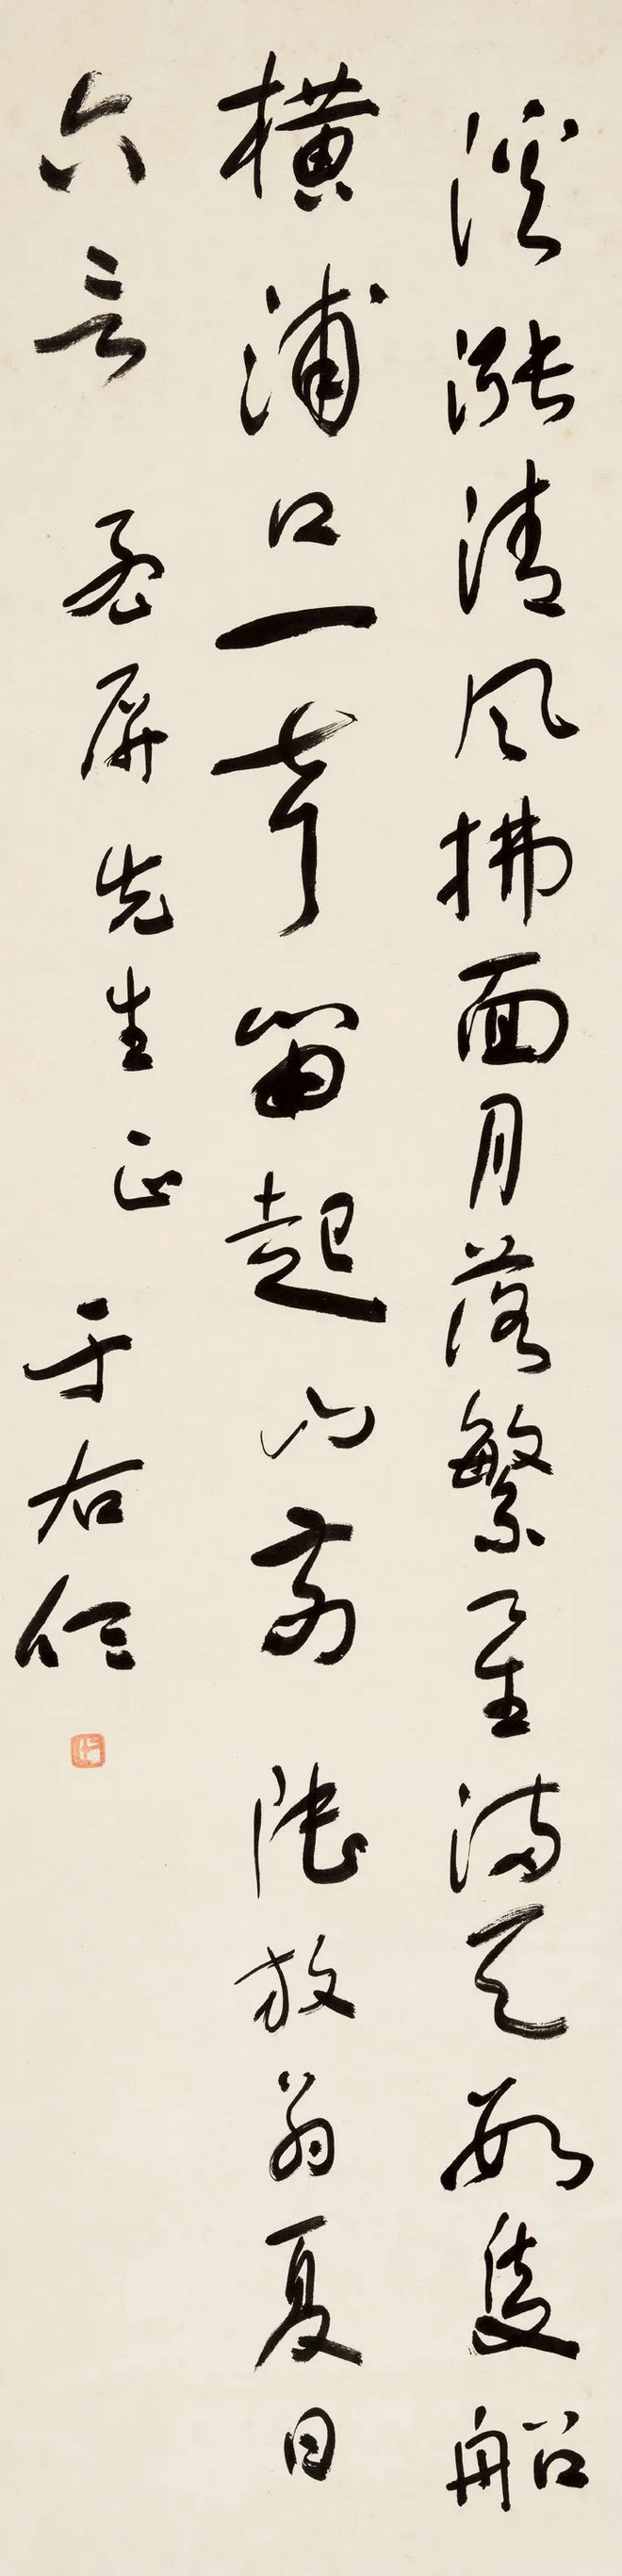 溪漲清風拂面月落繁星滿天數隻船
橫浦口一聲笛起山前 陸放翁夏日
六言 屏先生正 于右任